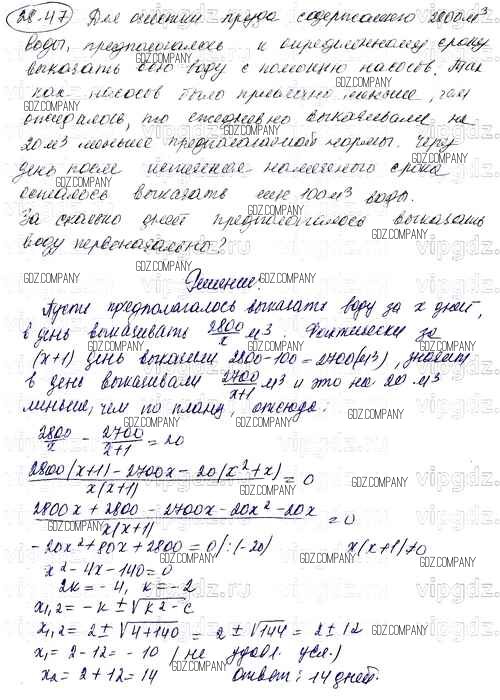 28.47 Для очистки пруда содержащего 2800 м³
воды, предполагалось к определенному сроку
выкачать всю воду с помощью насосов. Так
как насосов было прислано меньше, чем
ожидалось, то ежедневно выкачивали на
20 м³ меньше предполагаемой нормы. Через
день после истечения намеченного срока
осталось выкачать еще 100 м³ воды.
За сколько дней предполагалось выкачать
воду первоначально?
Решение:
Пусть предполагалось выкачать воду за x дней,
в день выкачивать 2800/x м³. Фактически за
(x+1) день выкачали 2800-100=2700(м³), значит
в день выкачивали 2700/(x+1) м³ и это на 20 м³
меньше, чем по плану, отсюда:
2800/x - 2700/(x+1) = 20
(2800(x+1) - 2700x - 20(x²+x))/(x(x+1)) = 0
(2800x + 2800 - 2700x - 20x² - 20x)/(x(x+1)) = 0
-20x² + 80x + 2800 = 0 /:(-20) x(x+1)≠0
x² - 4x - 140 = 0
2k = -4, k = -2
x₁,₂ = -k ± √(k² - c)
x₁,₂ = 2 ± √(4+140) = 2 ± √144 = 2 ± 12
x₁ = 2 - 12 = -10 (не удовл. усл.)
x₂ = 2 + 12 = 14 Ответ: 14 дней.
GDZ.COMPANY
vipgdz.ru